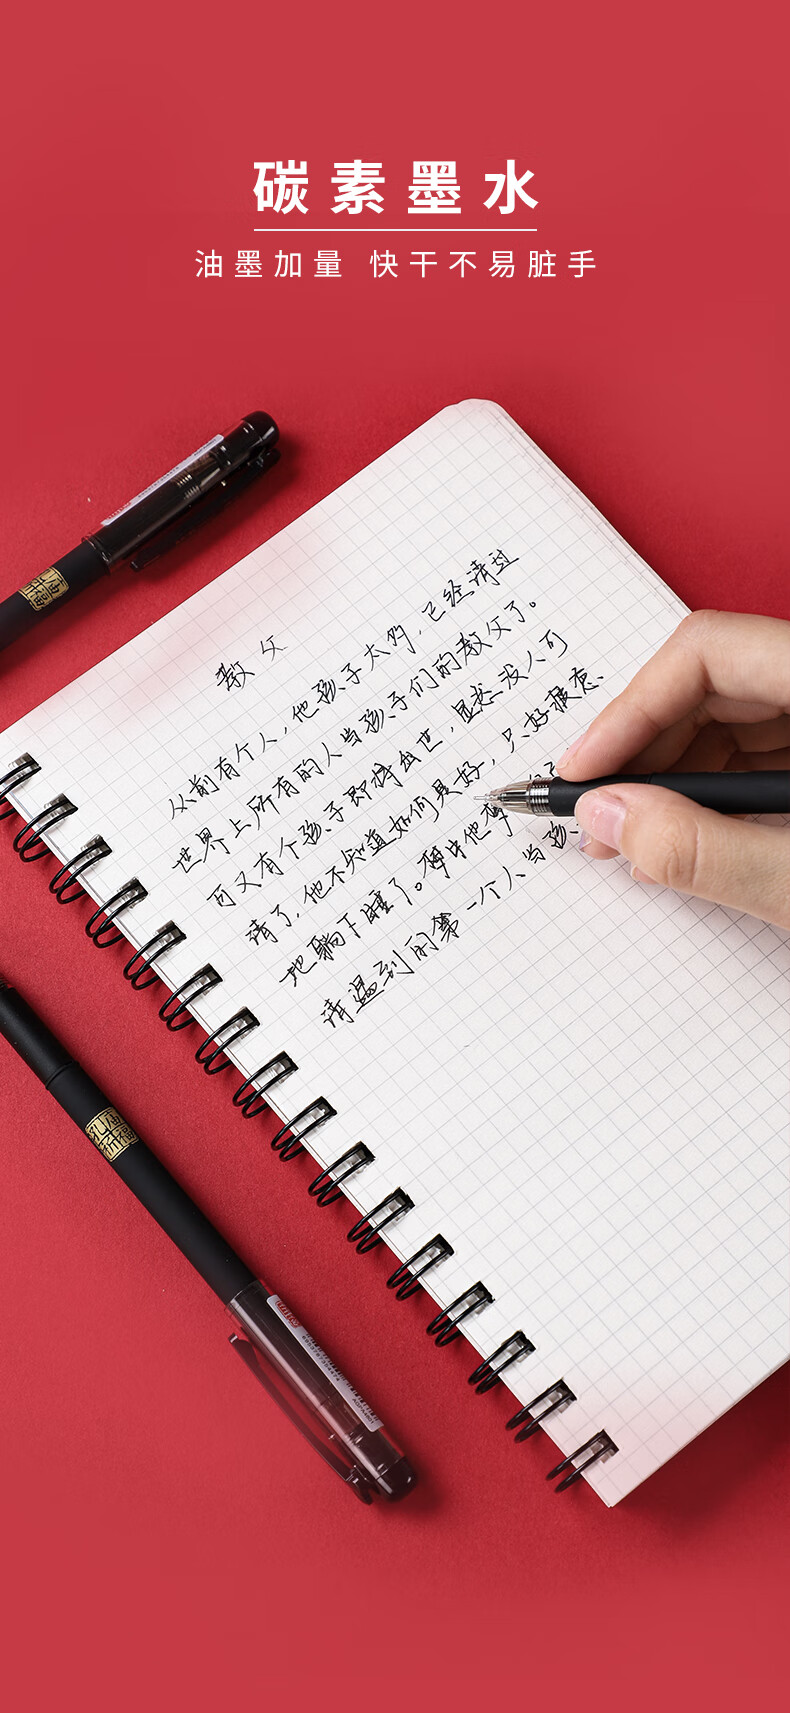 碳素墨水
油墨加量 快干不易脏手
孔庙祈福
教父
从前有个人，他孩子太多，已经请过
世界上所有的人当孩子们的教父了。
可又有个孩子即将出世，显然没人可
请了，他不知道如何是好，只好疲惫
地躺下睡了。梦中他梦
请遇到的第一个人当孩
孔庙祈福